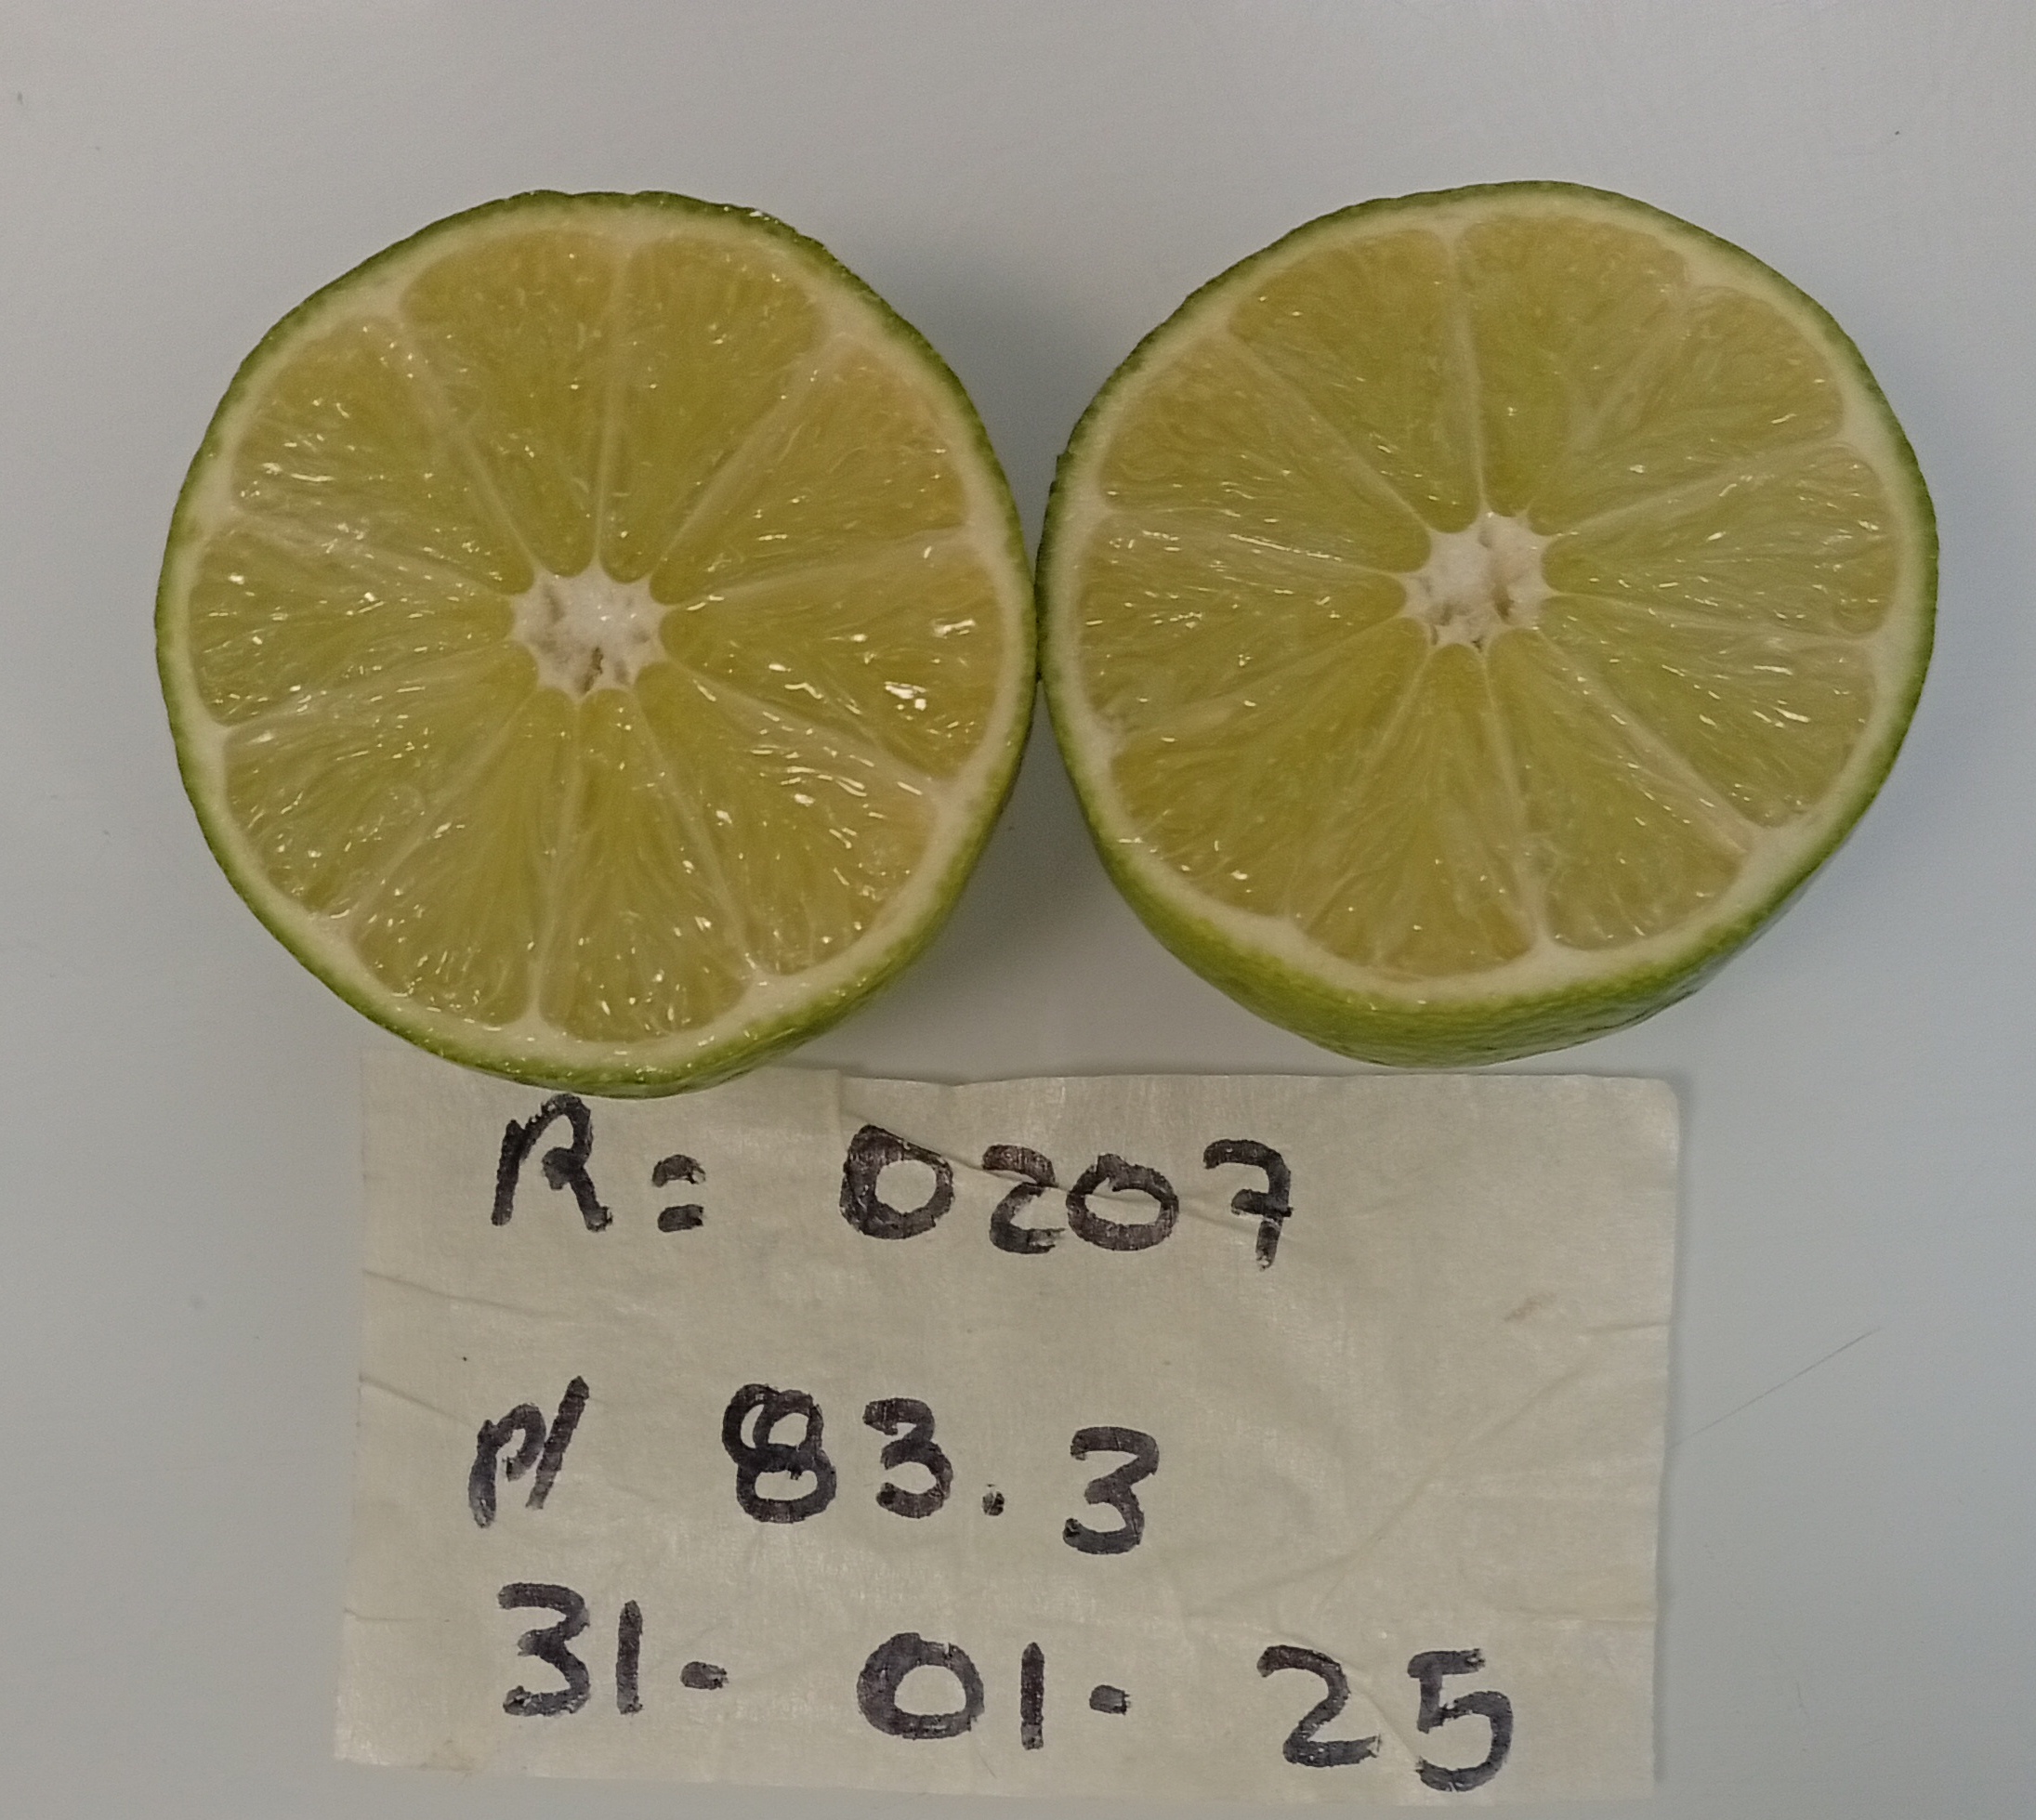 R= 0207
p/ 83.3
31- 01- 25